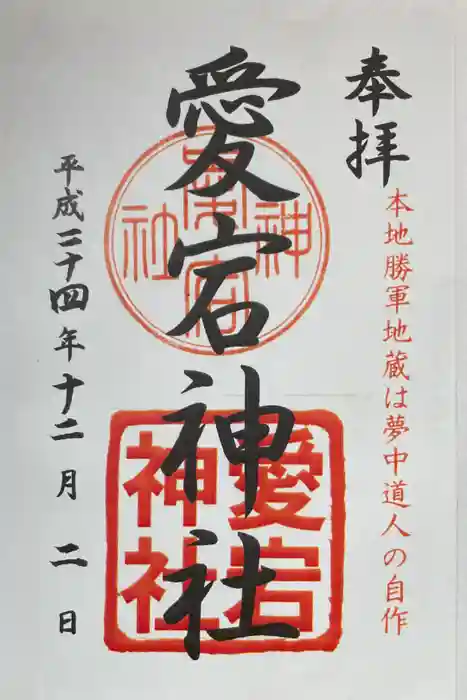 奉拝
本地勝軍地蔵は夢中道人の自作
愛宕神社
愛宕
神社
平成二十四年十二月二日